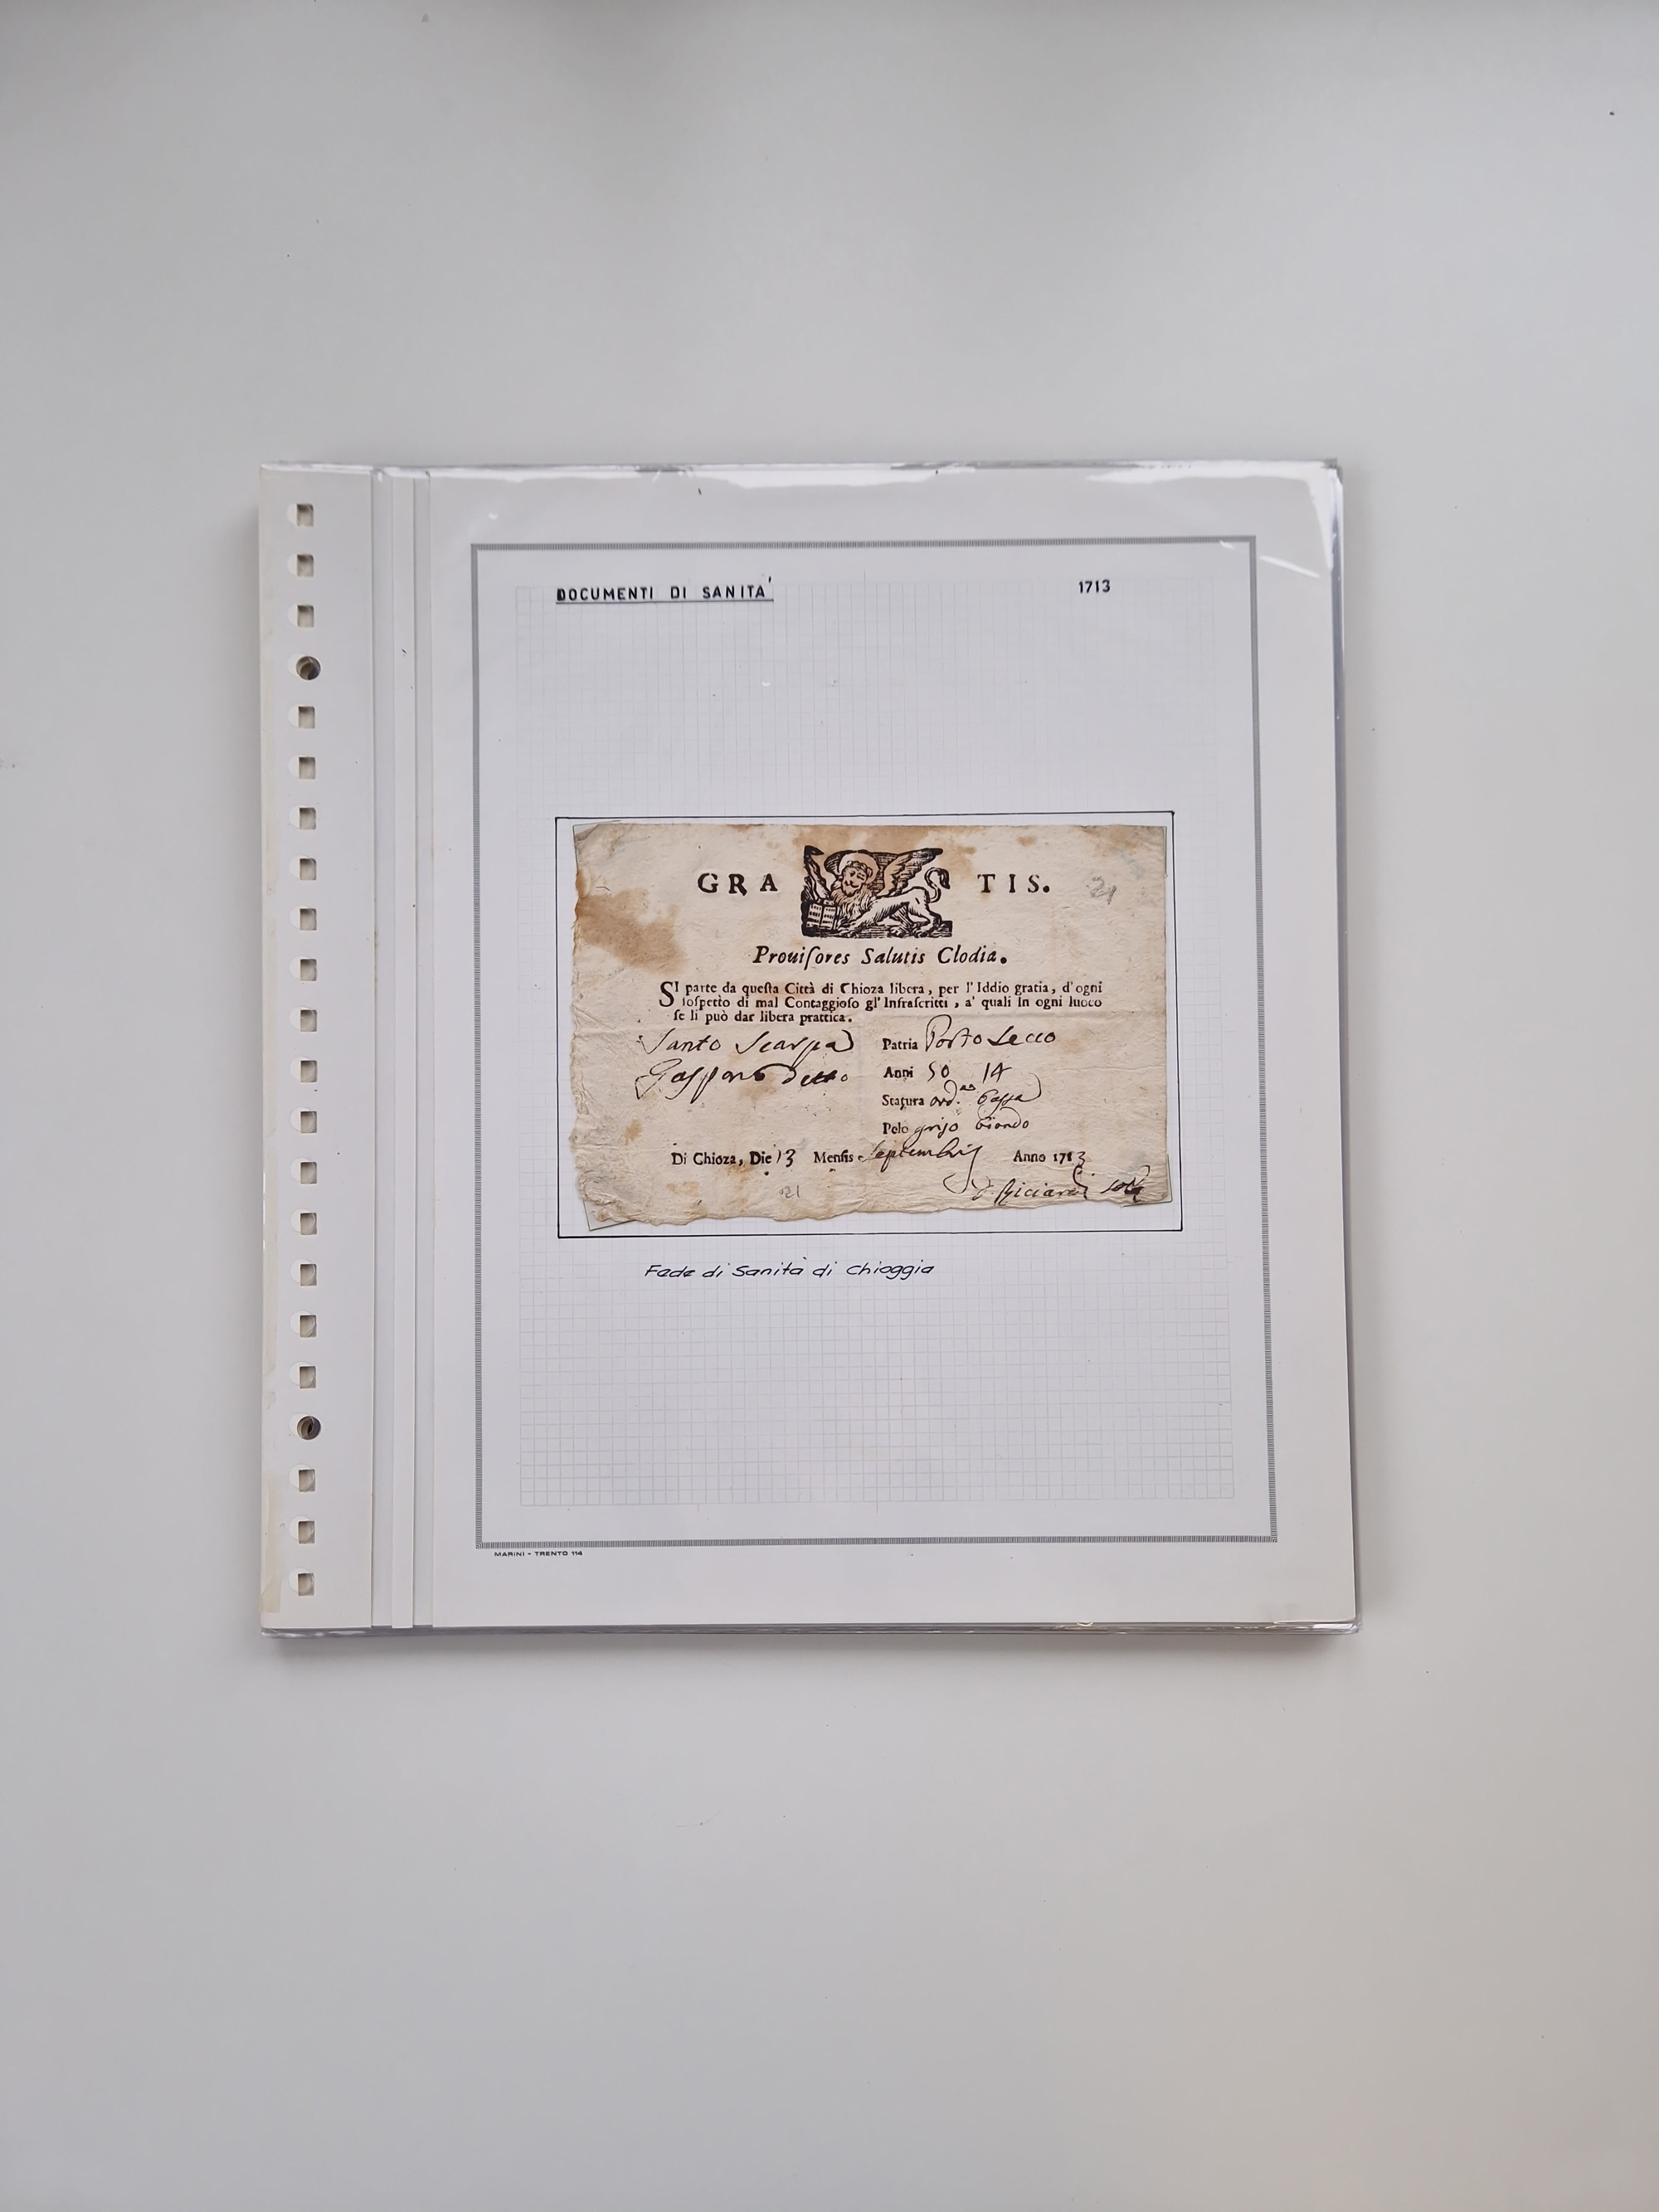 DOCUMENTI DI SANITA'
1713
GRA TIS.
21
Prouiſores Salutis Clodiæ.
SI parte da queſta Città di Chioza libera, per l'Iddio gratia, d'ogni
ſoſpetto di mal Contaggioſo gl'Infraſcritti, a' quali in ogni luoco
ſe li può dar libera prattica.
Santo Scarpa Patria Porto Secco
detto Anni 50 14
Statura ord.ª bassa
Pelo griso biondo
Di Chioza, Die 13 Menſis Septembris Anno 1713
21
Fede di Sanità di Chioggia
MARINI - TRENTO 114